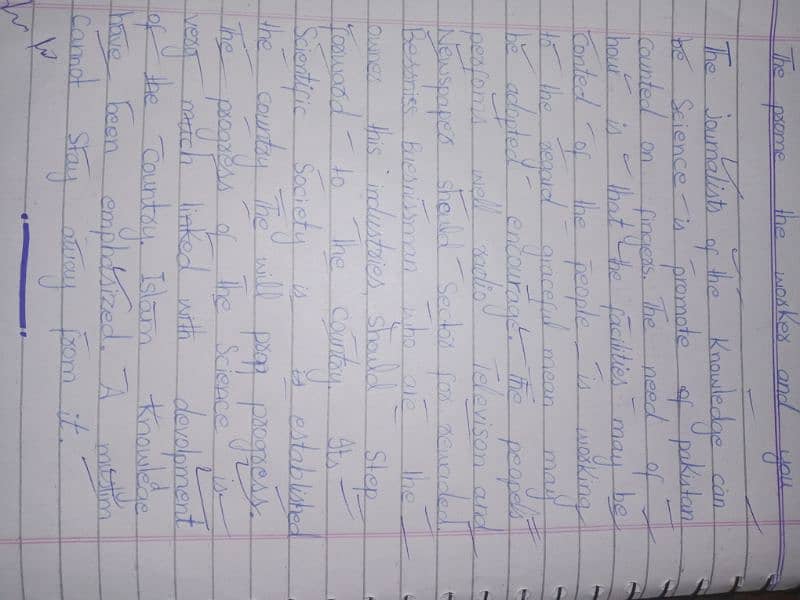 The prome the worker and you
The journalists of the Knowledge can
be Science is promote of pakistan
counted on fingers. The need of
hour is that the facilities may be
Conted of the people is working
to the regard graceful mean may
be adopted encourage. The peopels
persons well radio Televison and
Newspaper should Sector for rewarded
Bessnies Biesnissman who are the
owner this industries, should Step
forward to the country. Its
Scientific Society is is established
the country the will prog progress.
The progress of the Science is
very much linked with devolpment
of the Country. Islam Knowledge
have been emphasized. A muslim
Cannot Stay away from it.